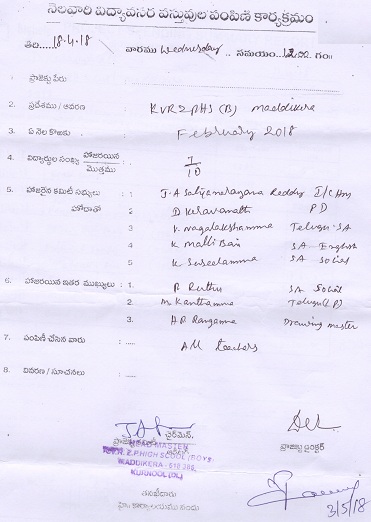 నెలవారి విద్యావసర వస్తువుల పంపిణి కార్యక్రమం
తేది.... 18.4.18 వారము Wednesday .. సమయం: గం॥
1. ప్రాజెక్టు పేరు : .....
2. ప్రదేశము / ఆవరణ : KVR ZPHS (B) Maddikera
3. ఏ నెల కొఱకు : February 2018
4. విద్యార్థుల సంఖ్య హాజరయిన / మొత్తము : 7/10
5. హాజరైన కమిటీ సభ్యులు : 1 J.A Satyanarayana Reddy I/C Hm
హోదాతో 2 D Keravanathi PD
3 V. Nagalakshamma Telugu-SA
4 K Malli Bai SA - English
5 K Suseelamma SA Social
6. హాజరయిన ఇతర ముఖ్యులు : 1. P Ruthu SA Social
2. M Kanthamma Telugu (LP)
3. H.R Rangamma Drawing master
7. పంపిణి చేసిన వారు : ..... All teachers
8. వివరణ / సూచనలు : .....
ఛైర్మెన్,
ప్రాజెక్టు కమిటీ
ప్రాజెక్టు డైరెక్టర్
HEAD MASTER
K.V.R. Z.P.HIGH SCOOL (BOYS)
MADDIKERA - 518 385,
KURNOOL (Dt.)
3/5/18